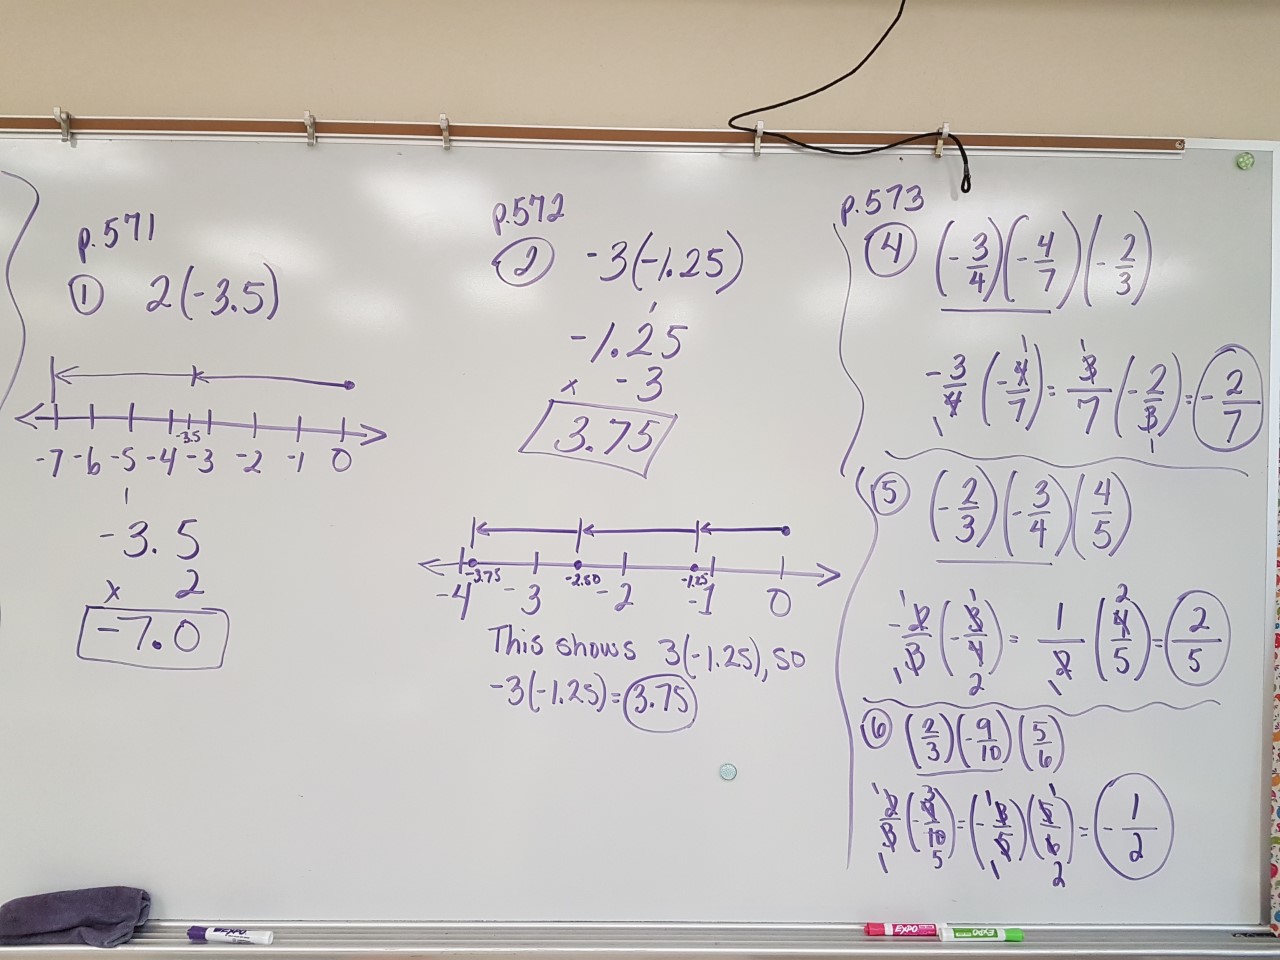 p.571
① 2(-3.5)
-3.5
-7 -6 -5 -4 -3 -2 -1 0
1
-3.5
x 2
-7.0
p.572
② -3(-1.25)
1
-1.25
x -3
3.75
-3.75 -2.50 -1.25
-4 -3 -2 -1 0
This shows 3(-1.25), so
-3(-1.25)=3.75
p.573
④ (-3/4)(-4/7)(-2/3)
-3/4 (-4/7) = 3/7 (-2/3) = -2/7
⑤ (-2/3)(-3/4)(4/5)
-2/3 (-3/4) = 1/2 (4/5) = 2/5
⑥ (2/3)(-9/10)(5/6)
2/3 (-9/10) = (-3/5)(5/6) = -1/2
EXPO
EXPO
EXPO